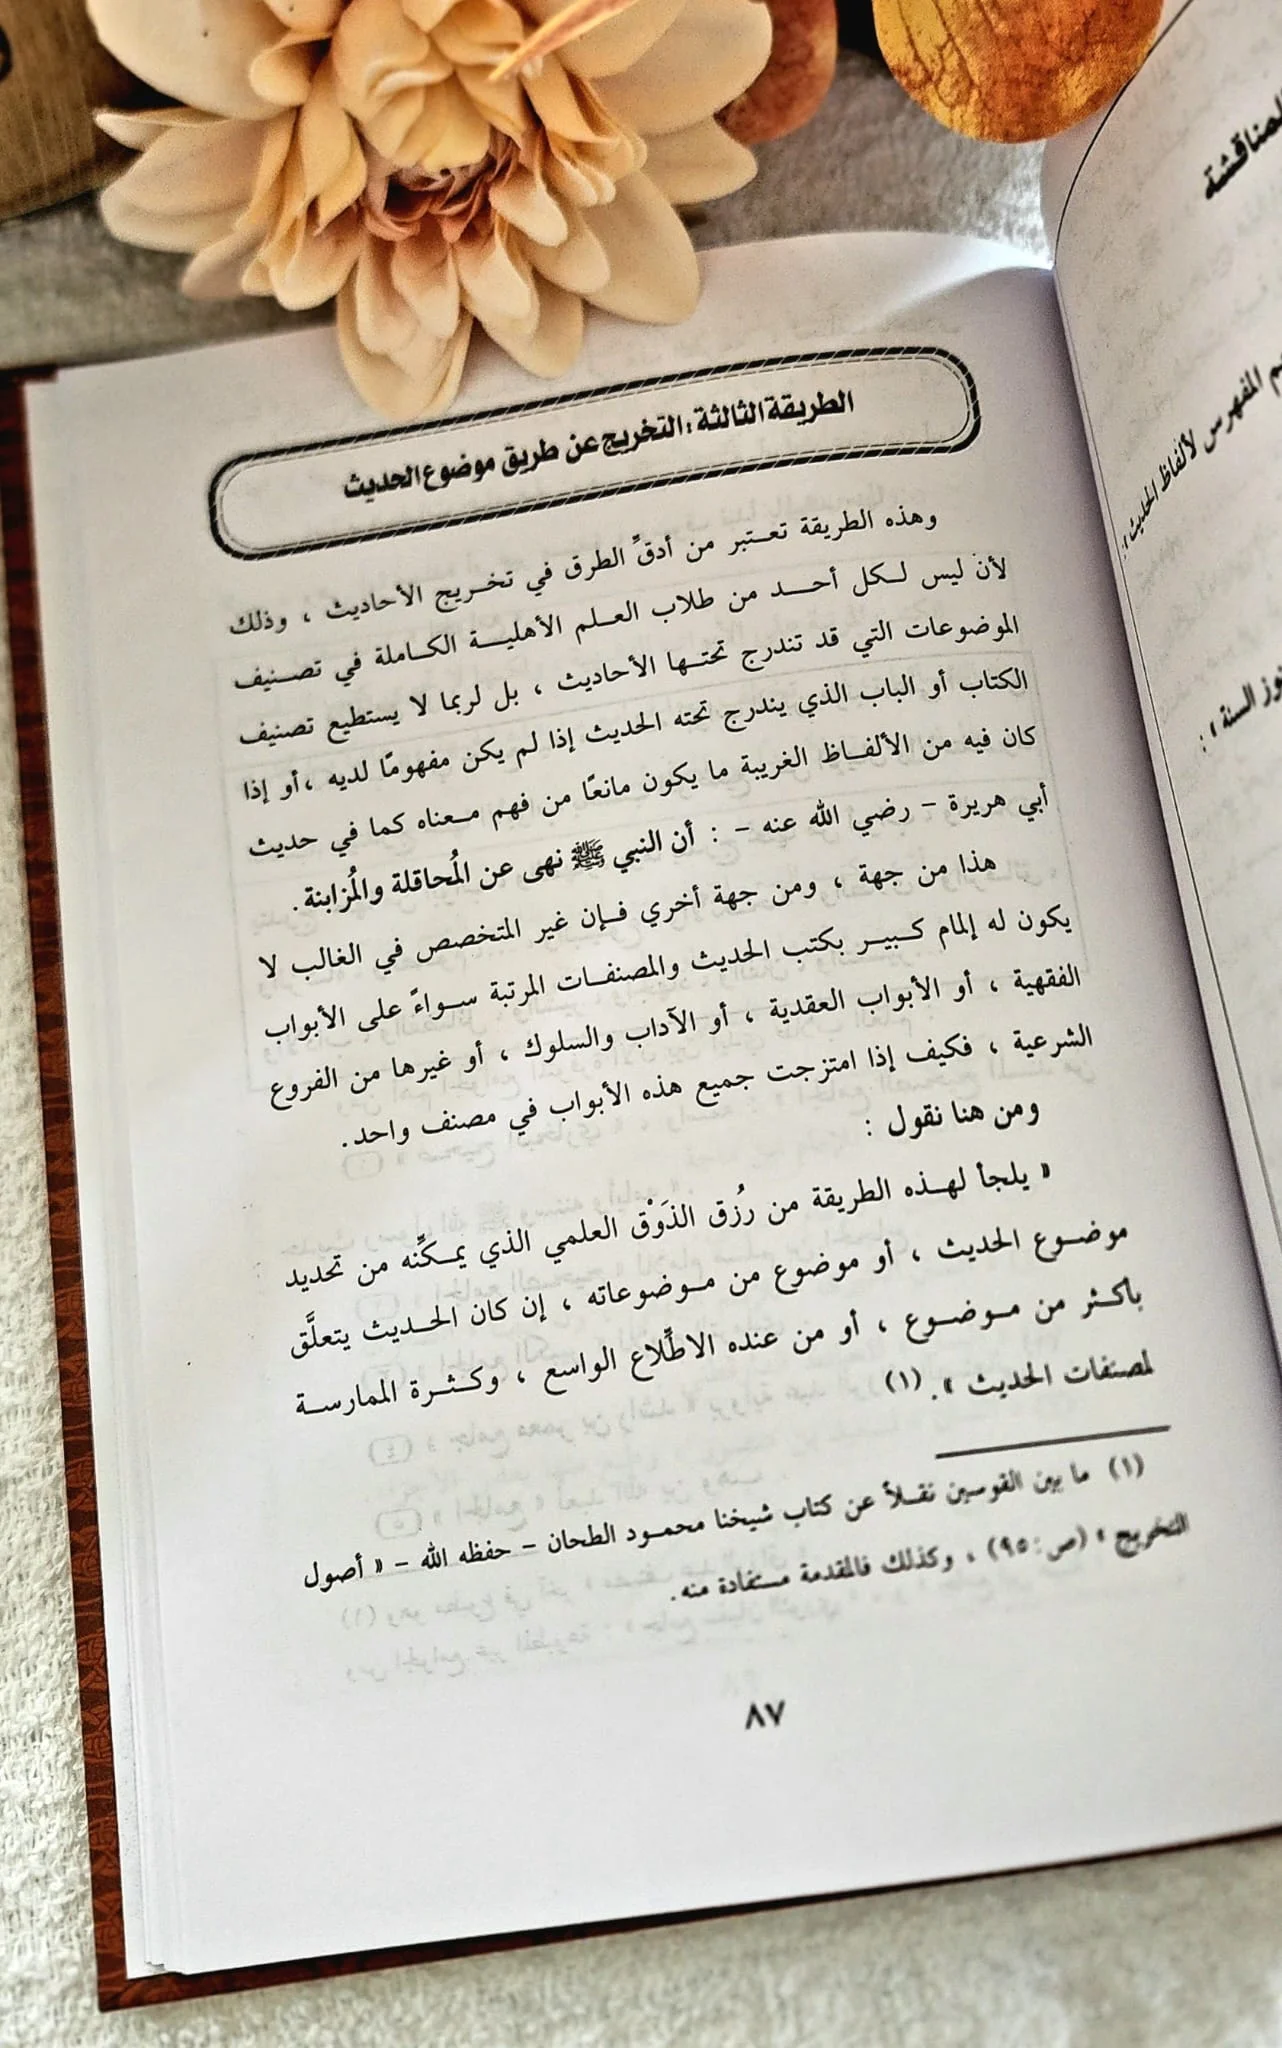 الطريقة الثالثة : التخريج عن طريق موضوع الحديث
وهذه الطريقة تعتبر من أدقِّ الطرق في تخريج الأحاديث ، وذلك
لأن ليس لكل أحد من طلاب العلم الأهلية الكاملة في تصنيف
الموضوعات التي قد تندرج تحتها الأحاديث ، بل لربما لا يستطيع تصنيف
الكتاب أو الباب الذي يندرج تحته الحديث إذا لم يكن مفهومًا لديه ، أو إذا
كان فيه من الألفاظ الغريبة ما يكون مانعًا من فهم معناه كما في حديث
أبي هريرة – رضي الله عنه – : أن النبي ﷺ نهى عن المُحاقلة والمُزابنة .
هذا من جهة ، ومن جهة أخري فإن غير المتخصص في الغالب لا
يكون له إلمام كبير بكتب الحديث والمصنفات المرتبة سواءً على الأبواب
الفقهية ، أو الأبواب العقدية ، أو الآداب والسلوك ، أو غيرها من الفروع
الشرعية ، فكيف إذا امتزجت جميع هذه الأبواب في مصنف واحد.
ومن هنا نقول :
« يلجأ لهذه الطريقة من رُزق الذَوْق العلمي الذي يمكِّنه من تحديد
موضوع الحديث ، أو موضوع من موضوعاته ، إن كان الحديث يتعلَّق
بأكثر من موضوع ، أو من عنده الاطِّلاع الواسع ، وكثرة الممارسة
لمصنفات الحديث » . (١)
(١) ما بين القوسين نقلاً عن كتاب شيخنا محمود الطحان – حفظه الله – « أصول
التخريج » (ص:٩٥) ، وكذلك فالمقدمة مستفادة منه.
٨٧
المناقشة
المفهرس لألفاظ الحديث :
السنة » :